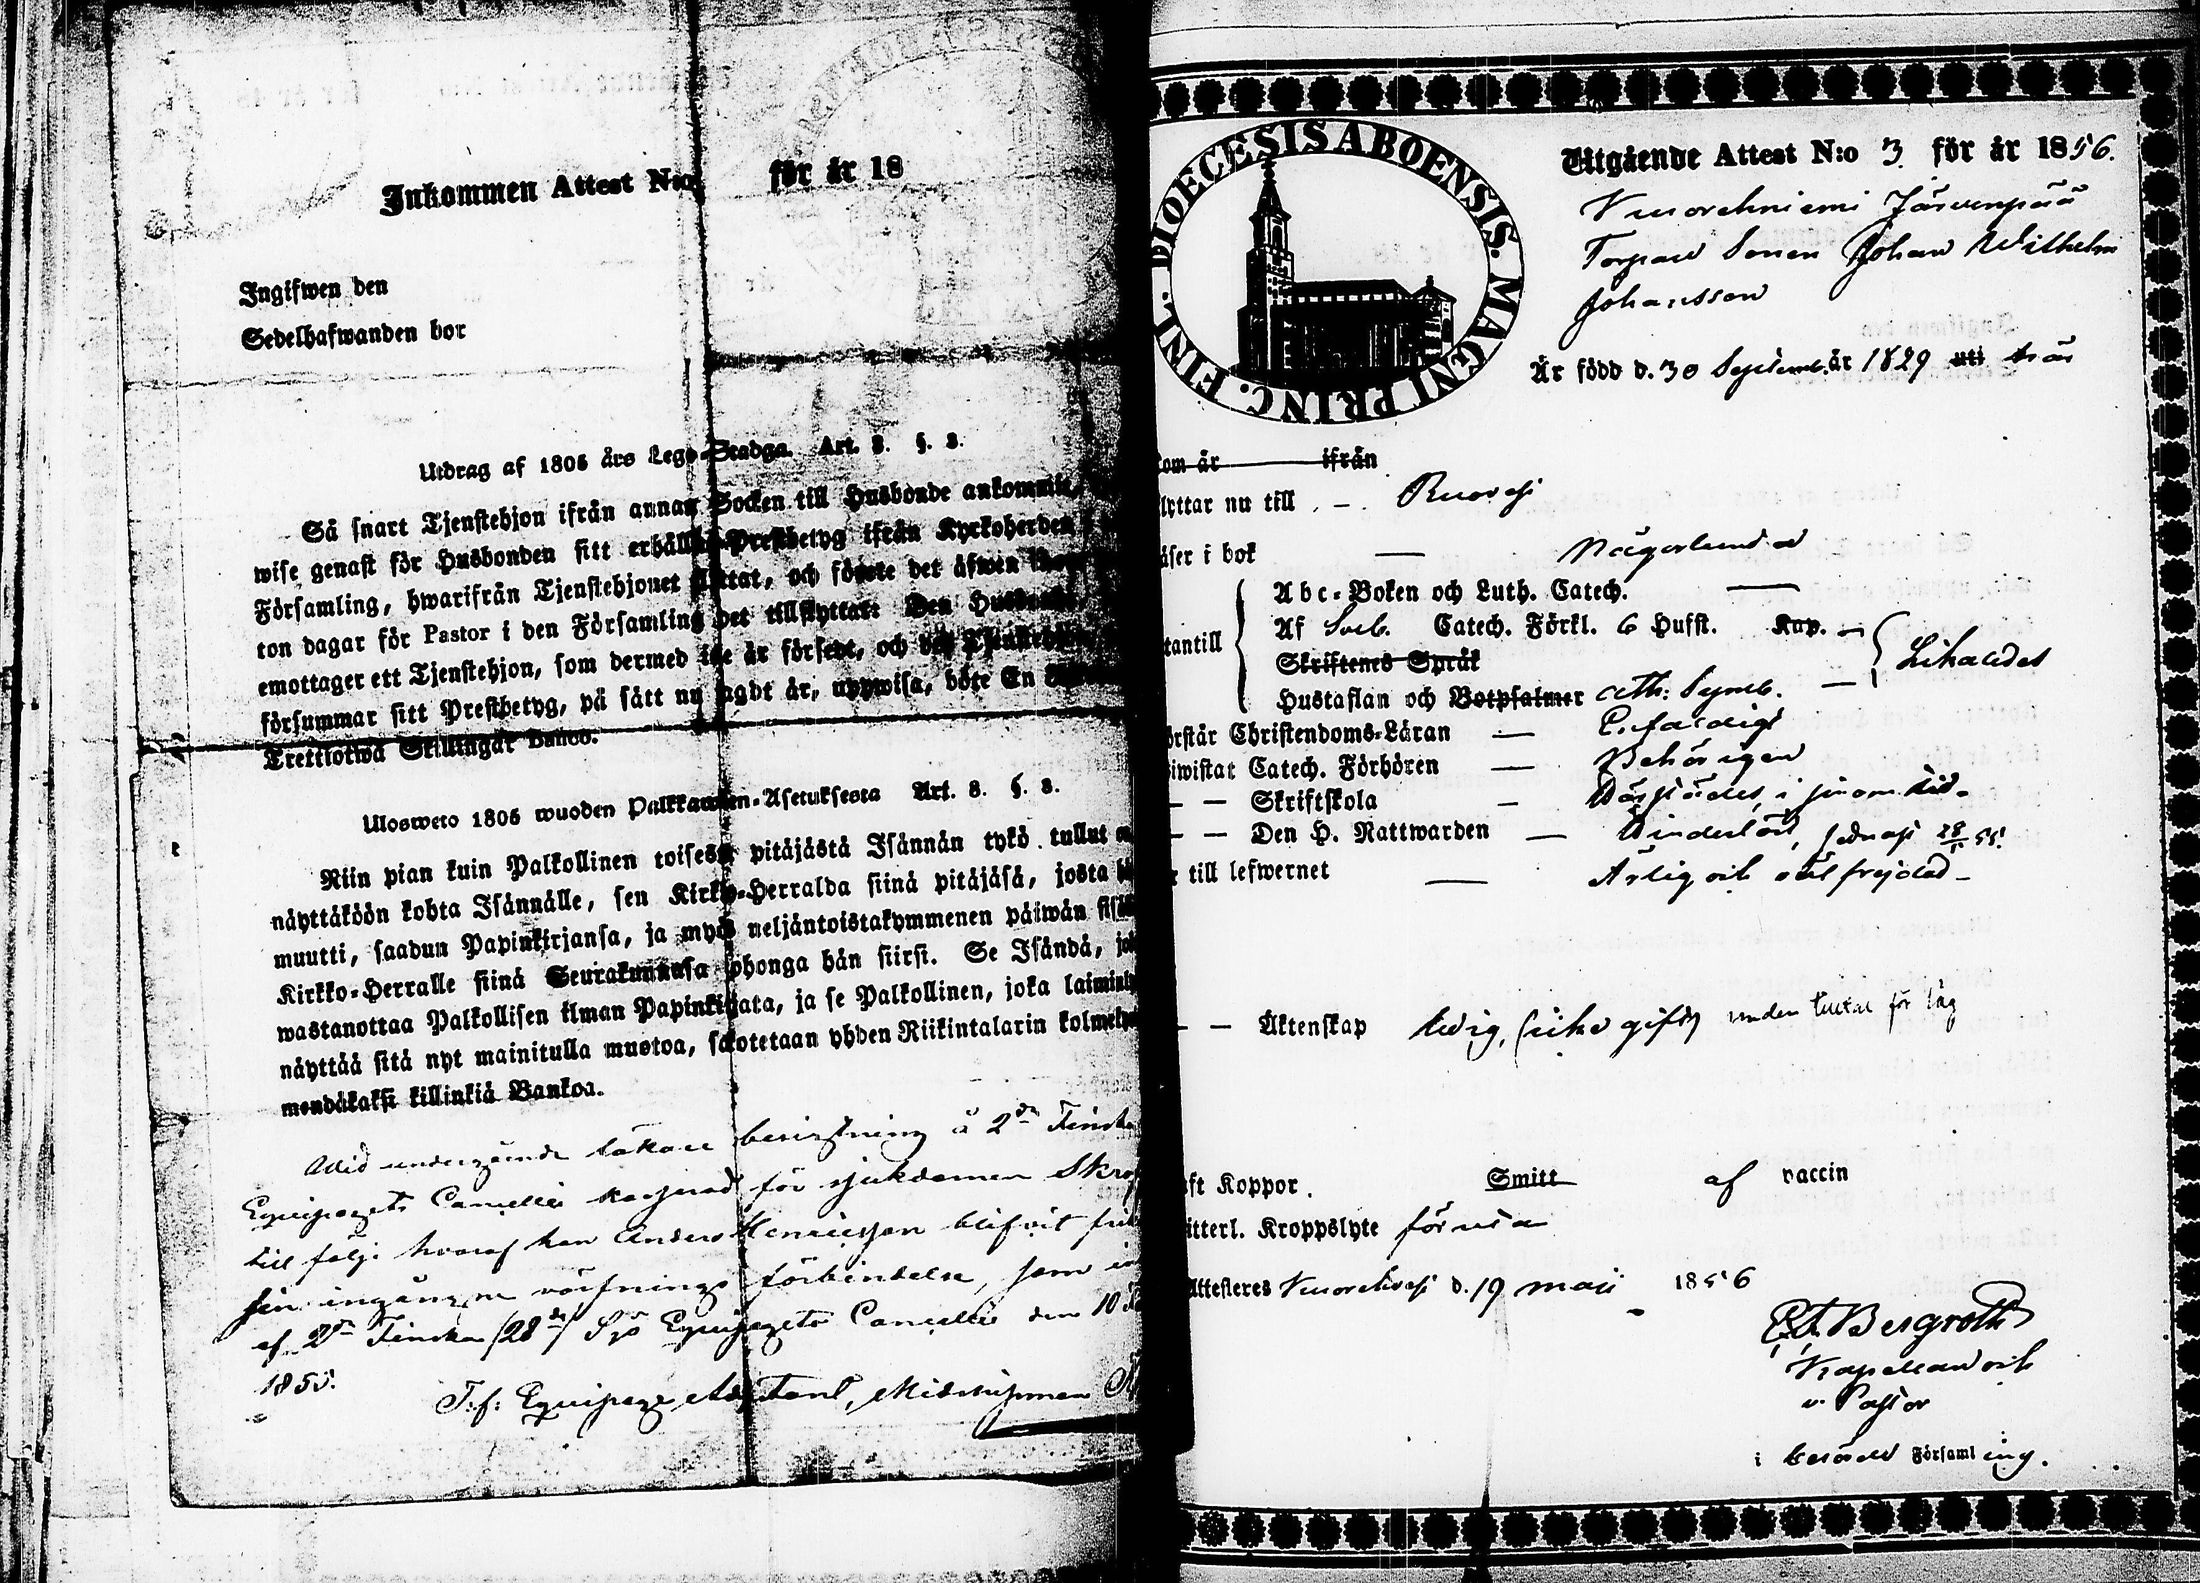 Inkommen Attest N:o för år 18
Ingifwen den
Sedelhafwanden bor
Utdrag af 1805 års Lego-Stadga. Art. 8. §. 8.
Så snart Tjenstehjon ifrån annan Socken till Husbonde ankommit,
wise genast för Husbonden sitt erhållna Prestbetyg ifrån Kyrkoherden
Församling, hwarifrån Tjenstehjonet flyttat, och förete det äfwen
ton dagar för Pastor i den Församling det tillflyttat: Den Husbonde
emottager ett Tjenstehjon, som dermed icke är försedt, och det Tjenstehjon
försummar sitt Prestbetyg, på sätt nu sagdt är, uppwisa, böte En
Trettiotwå Skillingar Banco.
Ulosweto 1805 wuoden Palkkawäen-Asetuksesta Art. 8. §. 8.
Niin pian kuin Palkollinen toisesta pitäjästä Isännän tykö tullut
näyttäköön kohta Isännälle, sen Kirkko-Herralda siinä pitäjäsä, josta
muutti, saadun Papinkirjansa, ja myös neljäntoistakymmenen päiwän
Kirkko-Herralle siinä Seurakunnasa johonga hän siirsi. Se Isändä,
wastanottaa Palkollisen ilman Papinkirjata, ja se Palkollinen, joka
näyttää sitä nyt mainitulla muotoa, sakotetaan yhden Riikintalarin
mendäkaksi killinkiä Bankoa.
Wid undergående läkare besigtning å 2dra Finska
Equipagets Cancellie kasserad för sjukdomen
till följe hvaraf han Anders Henricsson blifvit
sin ingångne värfnings förbindelse, som
af 2dra Finska (28de) Sjö Equipagets Cancellie den 10
1855.
T.f. Equipage Adjutant, Midshipman
DIOECESIS ABOENSIS. MAGNI PRINC. FINL.
Utgående Attest N:o 3 för år 1856.
Vuorehniemi Järvenpää
Torpare Sonen Johan Wilhelm
Johansson
Är född d. 30 Septemb. år 1829 uti härs
om är ifrån
lyttar nu till - Ruovesi
äser i bok — Någorlunda
Abc-Boken och Luth. Catech. —
tantill Af Sveb. Catech. Förkl. 6 Hufst. Kap. — Likaledes
Skriftenes Språk
Hustaflan och Botpsalmer Ath: Symb. —
örstår Christendoms-Läran — Enfaldigt
iwistat Catech. Förhören — Behörigen
— — Skriftskola — i sin tid.
— — Den H. Nattwarden — senast 55.
r till lefwernet — Ärlig och väl frejdad —
— — Äktenskap ledig, (icke gift) under för låg
aft Koppor. Smitt af vaccin
itterl. Kroppslyte förutan
Attesteres Vuorehvesi d. 19 Maji 1856
Bergroth
Kapellan och
v. Pastor
i berörde Församling.